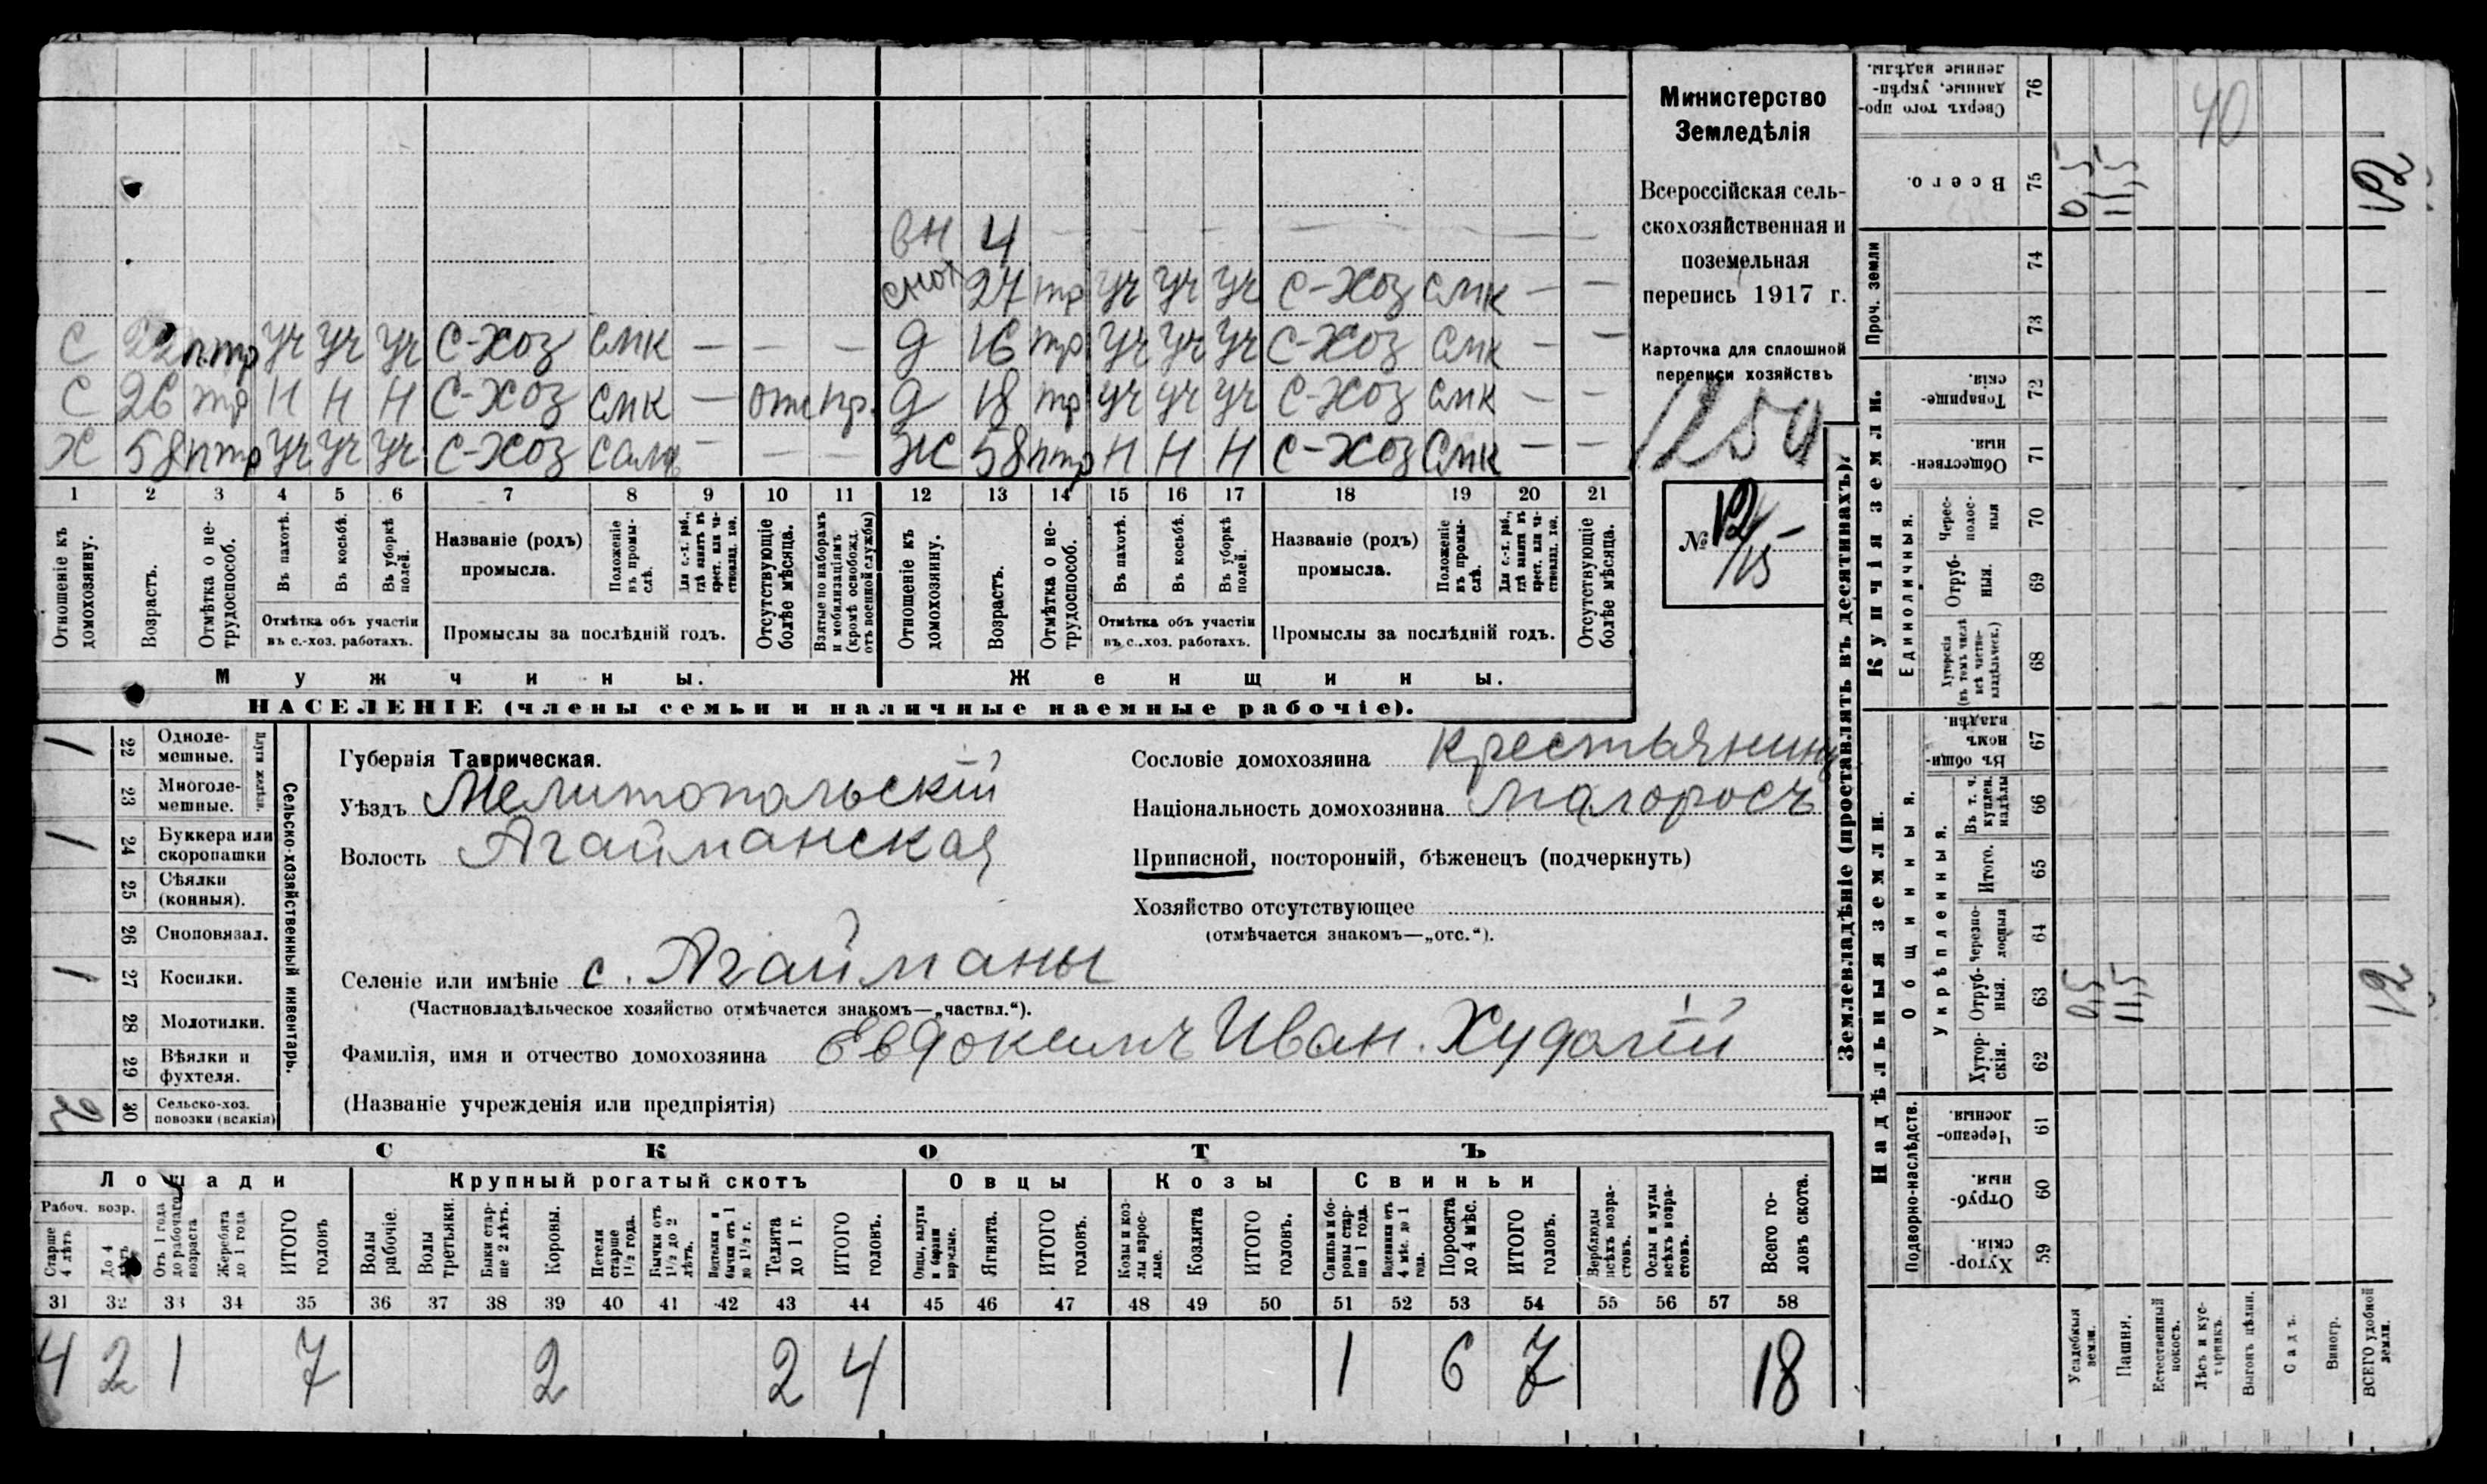 вн 4 — — — — — — — —
снох 27 тр уч уч уч С-Хоз смк — —
С 22 птр уч уч уч С-Хоз смк — — — д 16 тр уч уч уч С-Хоз смк — —
С 26 тр Н Н Н С-Хоз смк — отс пр. д 18 тр уч уч уч С-Хоз смк — —
Х 58 птр уч уч уч С-Хоз сам — — — Ж 58 птр Н Н Н С-Хоз смк — —
1 2 3 4 5 6 7 8 9 10 11 12 13 14 15 16 17 18 19 20 21
Отношеніе къ домохозяину.
Возрастъ.
Отмѣтка о не-трудоспособ.
Въ пахотѣ.
Въ косьбѣ.
Въ уборкѣ полей.
Отмѣтка объ участіи
въ с.-хоз. работахъ.
Названіе (родъ)
промысла.
Положеніе въ промы-слѣ.
Для с.-х. раб., гдѣ занятъ въ крест. или ча-стновлад. хоз.
Промыслы за послѣдній годъ.
Отсутствующіе болѣе мѣсяца.
Взятые по наборамъ и мобилизаціямъ (кромѣ освобожд. отъ военной службы)
Отношеніе къ домохозяину.
Возрастъ.
Отмѣтка о не-трудоспособ.
Въ пахотѣ.
Въ косьбѣ.
Въ уборкѣ полей.
Отмѣтка объ участіи
въ с..хоз. работахъ.
Названіе (родъ)
промысла.
Положеніе въ промы-слѣ.
Для с.-х. раб., гдѣ занятъ въ крест. или ча-стновлад. хоз.
Промыслы за послѣдній годъ.
Отсутствующіе болѣе мѣсяца.
Мужчины. Женщины.
НАСЕЛЕНІЕ (члены семьи и наличные наемные рабочіе).
Министерство
Земледѣлія
Всероссійская сель-
скохозяйственная и
поземельная
перепись 1917 г.
Карточка для сплошной
переписи хозяйствъ
1250
№ 12/15
1 22 Одноле-мешные.
23 Многоле-мешные.
Плуги желѣзн.
1 24 Буккера или скоропашки
25 Сѣялки (конныя).
26 Сноповязал.
1 27 Косилки.
28 Молотилки.
29 Вѣялки и фухтеля.
2 30 Сельско-хоз. повозки (всякія)
Сельско-хозяйственный инвентарь.
Губернія Таврическая.
Уѣздъ Мелитопольскій
Волость Агайманская
Сословіе домохозяина крестьянинъ
Національность домохозяина малоросъ
Приписной, посторонній, бѣженецъ (подчеркнуть)
Хозяйство отсутствующее
(отмѣчается знакомъ—„отс.“).
Селеніе или имѣніе с. Агайманы
(Частновладѣльческое хозяйство отмѣчается знакомъ—„частвл.“).
Фамилія, имя и отчество домохозяина Евдокимъ Иван. Худолій
(Названіе учрежденія или предпріятія)
СКОТЪ
Лошади Крупный рогатый скотъ Овцы Козы Свиньи
Рабоч. возр.
Старше 4 лѣтъ
До 4 лѣтъ
Отъ 1 года до рабочаго возраста
Жеребята до 1 года
ИТОГО головъ
Волы рабочіе.
Волы третьяки.
Быки стар-ше 2 лѣтъ.
Коровы.
Нетели старше 1½ года.
Бычки отъ 1½ до 2 лѣтъ.
Нетелки и бычки отъ 1 до 1½ г.
Телята до 1 г.
ИТОГО головъ.
Овцы, валухи и бараны взрослые.
Ягнята.
ИТОГО головъ.
Козы и коз-лы взрос-лые.
Козлята
ИТОГО головъ.
Свиньи и бо-ровы стар-ше 1 года.
Подсвинки отъ 4 мѣс. до 1 года.
Поросята до 4 мѣс.
ИТОГО головъ.
Верблюды всѣхъ возра-стовъ.
Ослы и мулы всѣхъ возра-стовъ.
Всего го-ловъ скота.
31 32 33 34 35 36 37 38 39 40 41 42 43 44 45 46 47 48 49 50 51 52 53 54 55 56 57 58
4 2 1 7 2 2 4 1 6 7 18
Землевладѣніе (проставлять въ десятинахъ).
Надѣльныя земли. Купчія земли. Проч. земли
Подворно-наслѣдств.
Общинныя.
Укрѣпленныя.
Единоличныя.
Хутор-скія. 59
Отруб-ныя. 60
Черезпо-лосныя. 61
Хутор-скія. 62
Отруб-ныя. 63 0,5 11,5 12
Черезпо-лосныя 64
Итого. 65
Въ т. ч. куплен. надѣлы 66
Въ общин-номъ владѣн. 67
Хуторскія (въ томъ числѣ всѣ частно-владѣльческ.) 68
Отруб-ныя. 69
Черес-полос-ныя 70
Обществен-ныя. 71
Товарище-скія. 72
73
74
Всего. 75 0,5 11,5 12
Сверхъ того про-данные, укрѣп-ленные надѣлы. 76 40
Усадебныя земли.
Пашня.
Естественный покосъ.
Лѣсъ и кус-тарникъ.
Выгонъ цѣлин.
Садъ.
Виногр.
ВСЕГО удобной земли.